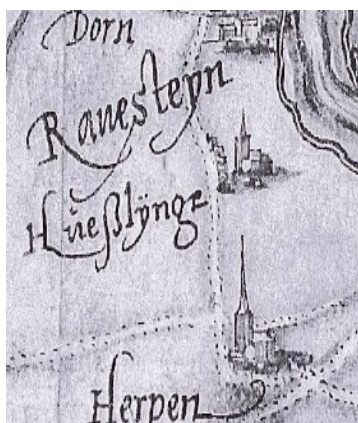 Dorn
Rauesteyn
Hůeßlÿnge
Herpen